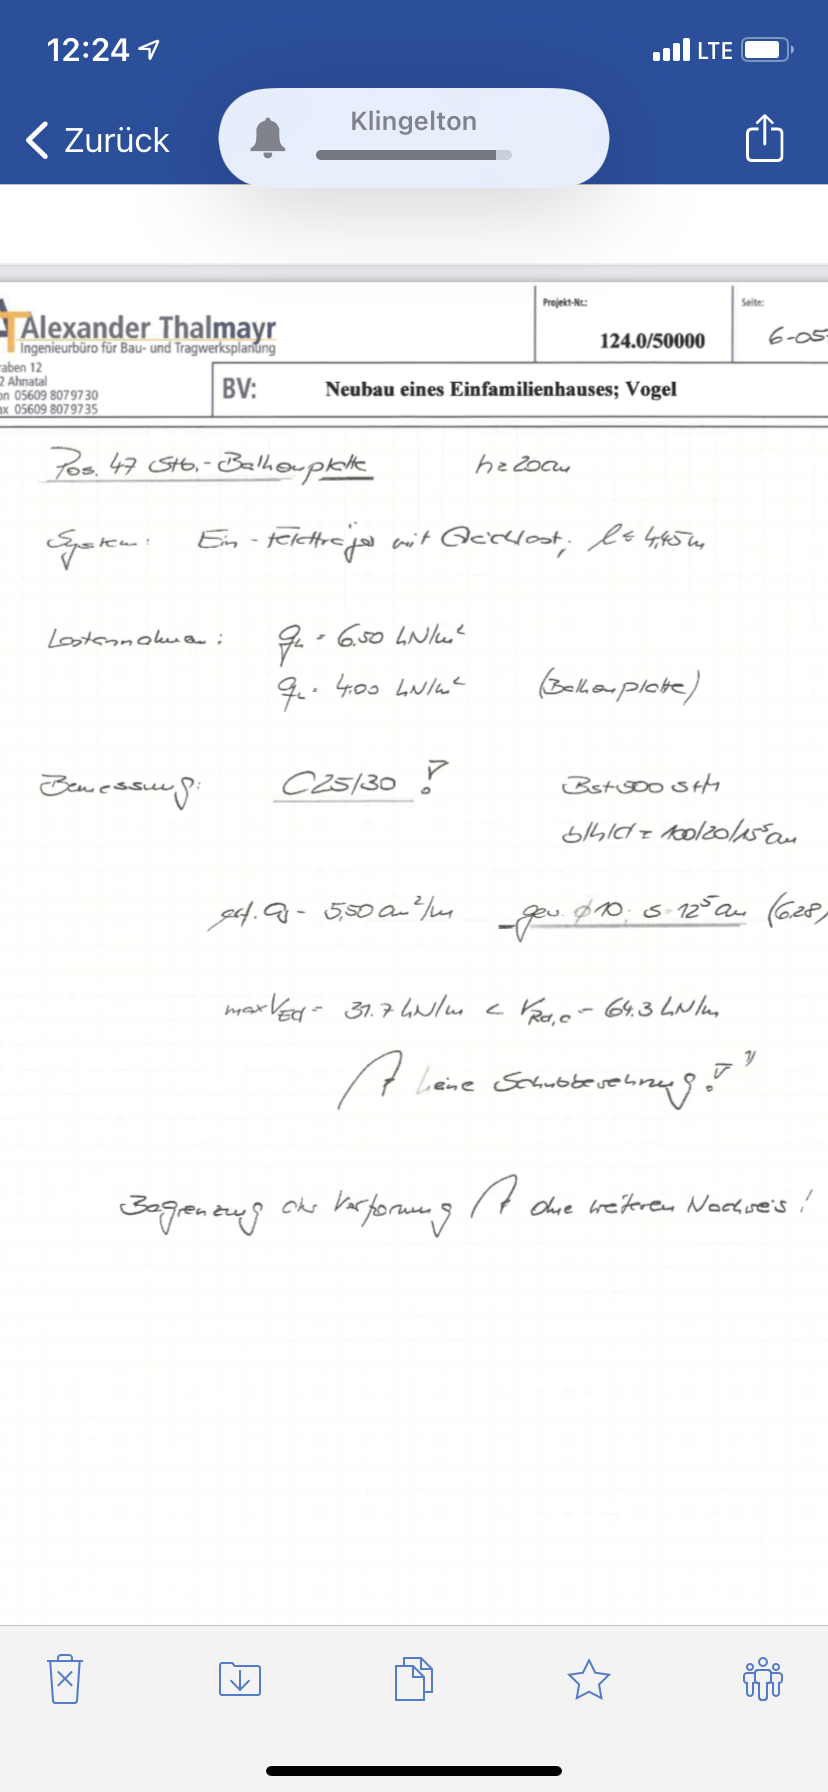 12:24
LTE
Zurück
Klingelton
Alexander Thalmayr
Ingenieurbüro für Bau- und Tragwerksplanung
raben 12
2 Ahnatal
on 05609 8079730
ax 05609 8079735
Projekt-Nr.:
124.0/50000
Seite:
6-05
BV:
Neubau eines Einfamilienhauses; Vogel
Pos. 47 Stb.-Balkonplatte h = 20cm
System: Ein-feldträger mit l = 4,45m
Lastannahmen: gk = 6.50 kN/m²
qk = 4.00 kN/m² (Balkonplatte)
Bemessung: C25/30 ! Bst 500 S+M
b/h/d = 100/20/15⁵ cm
erf. as = 5,50 cm²/m gew. ϕ10; s = 12⁵ cm (6.28)
max VEd = 31.7 kN/m < VRd,c = 64.3 kN/m
keine Schubbewehrung! 1)
Begrenzung der Verformung ohne weiteren Nachweis!